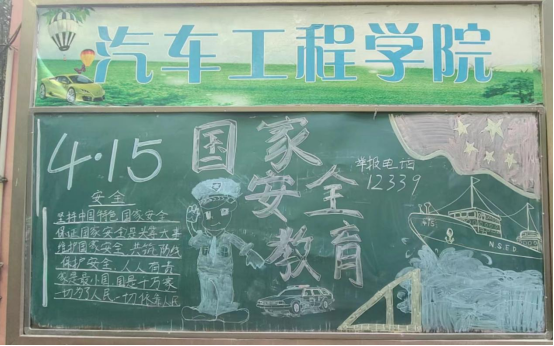 汽车工程学院
4·15
国家
安全
教育
举报电话
12339
安全
坚持中国特色国家安全
保证国家安全是头等大事
维护国家安全 共筑防线
保护安全 人人有责
家是最小国,国是千万家
一切为了人民 一切依靠人民
415
N.S.E.D